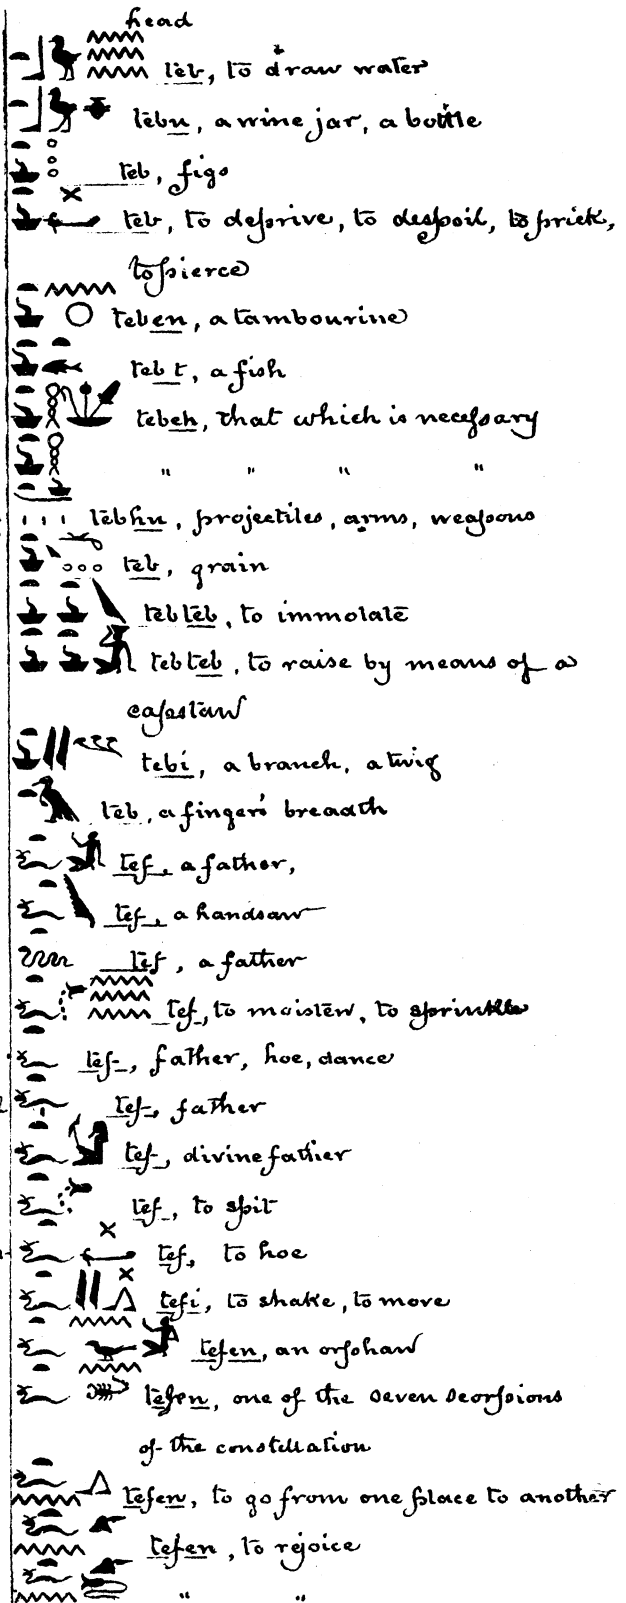 head
teb, to draw water
tebu, a wine jar, a bottle
teb, figs
teb, to deprive, to despoil, to prick,
to pierce
teben, a tambourine
teb t, a fish
tebeh, that which is necessary
" " " "
tebhu, projectiles, arms, weapons
teb, grain
tebteb, to immolate
tebteb, to raise by means of a
capstan
tebi, a branch, a twig
teb, a finger's breadth
tef, a father,
tef, a handsaw
tef, a father
tef, to moisten, to sprinkle
tef, father, hoe, dance
tef, father
tef, divine father
tef, to spit
tef, to hoe
tefi, to shake, to move
tefen, an orphan
tefen, one of the seven scorpions
of the constellation
tefen, to go from one place to another
tefen, to rejoice
" "